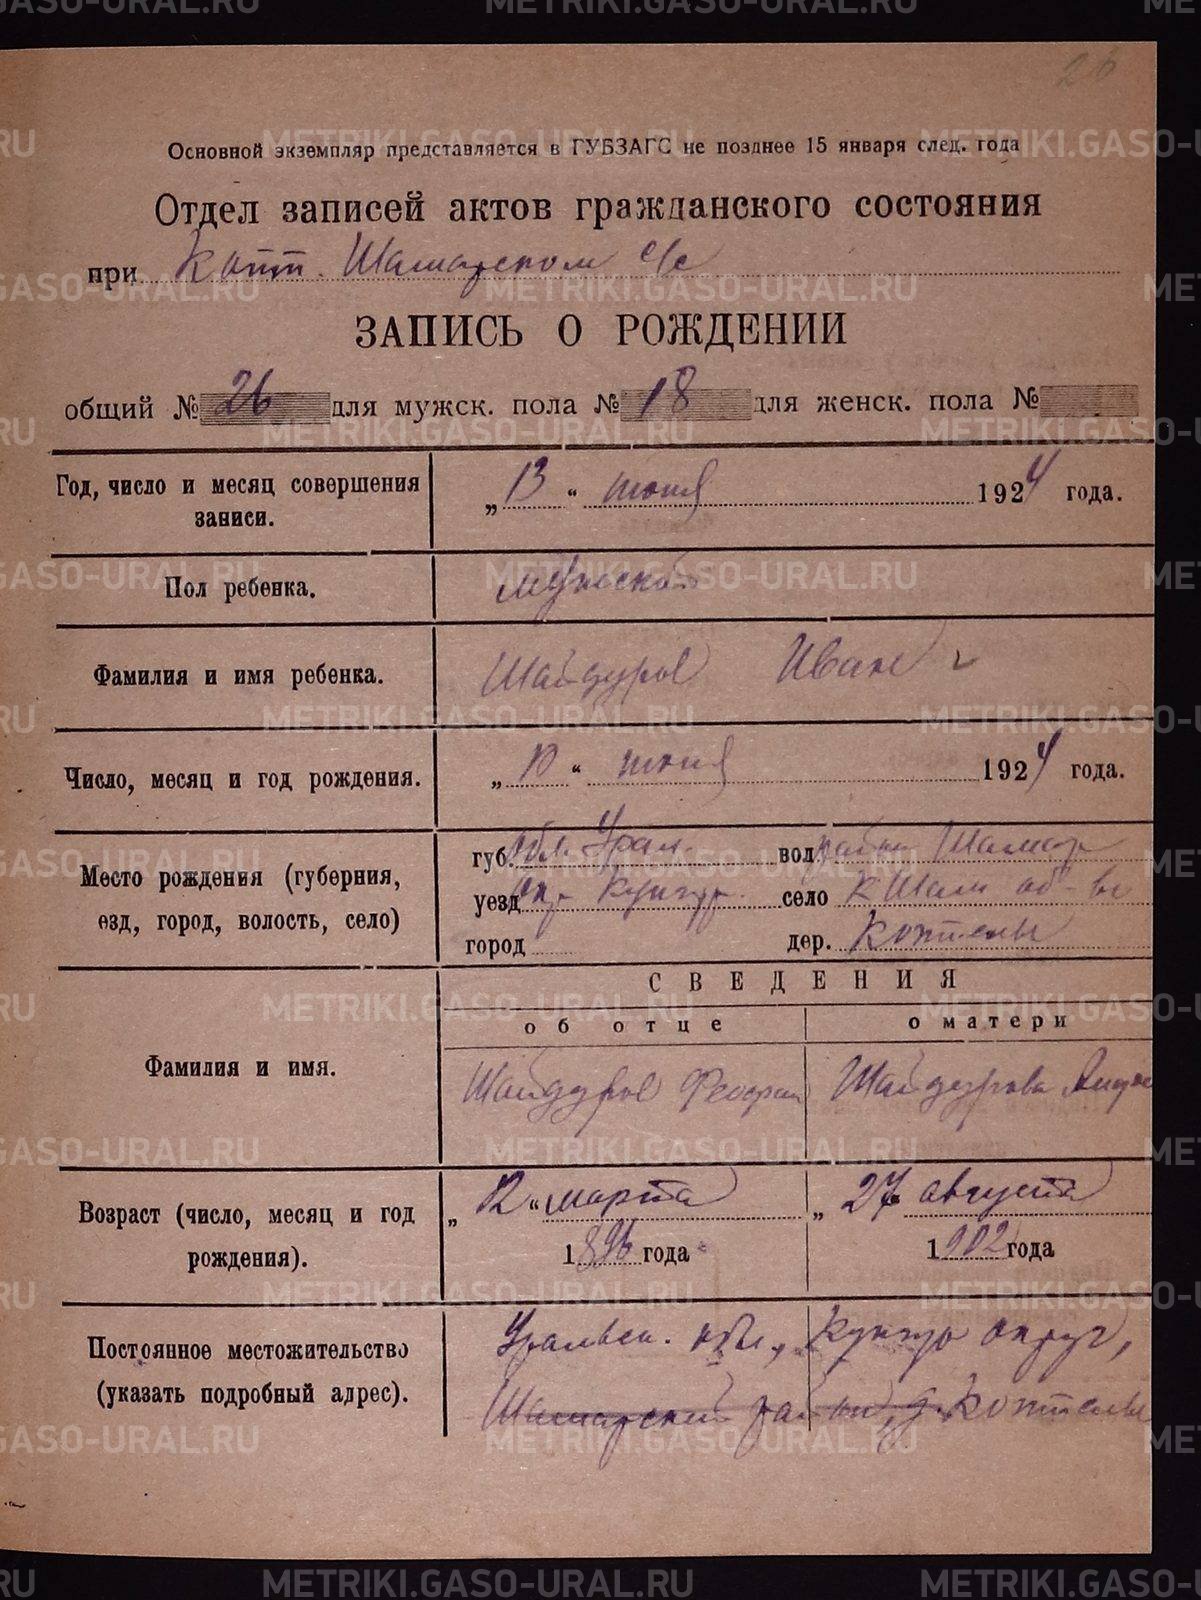 26
Основной экземпляр представляется в ГУБЗАГС не позднее 15 января след. года
Отдел записей актов гражданского состояния
при Котт. Шамарском с/с
ЗАПИСЬ О РОЖДЕНИИ
общий № 26 для мужск. пола № 18 для женск. пола №
Год, число и месяц совершения записи. „13“ июня 1924 года.
Пол ребенка. мужской
Фамилия и имя ребенка. Шайдуров Иван
Число, месяц и год рождения. „10“ июня 1924 года.
Место рождения (губерния, губ. обл. Урал. вол. район Шамар
езд, город, волость, село) уезд окр Кунгур. село К Шам об-ве
город дер. Коттелы
СВЕДЕНИЯ
об отце о матери
Фамилия и имя. Шайдуров Шайдурова
Возраст (число, месяц и год „12“ марта „27 августа
рождения). 1896 года 1902 года
Постоянное местожительство Уральск. обл., Кунгур округ,
(указать подробный адрес). Шамарский район, д. Коттелы
METRIKI.GASO-URAL.RU